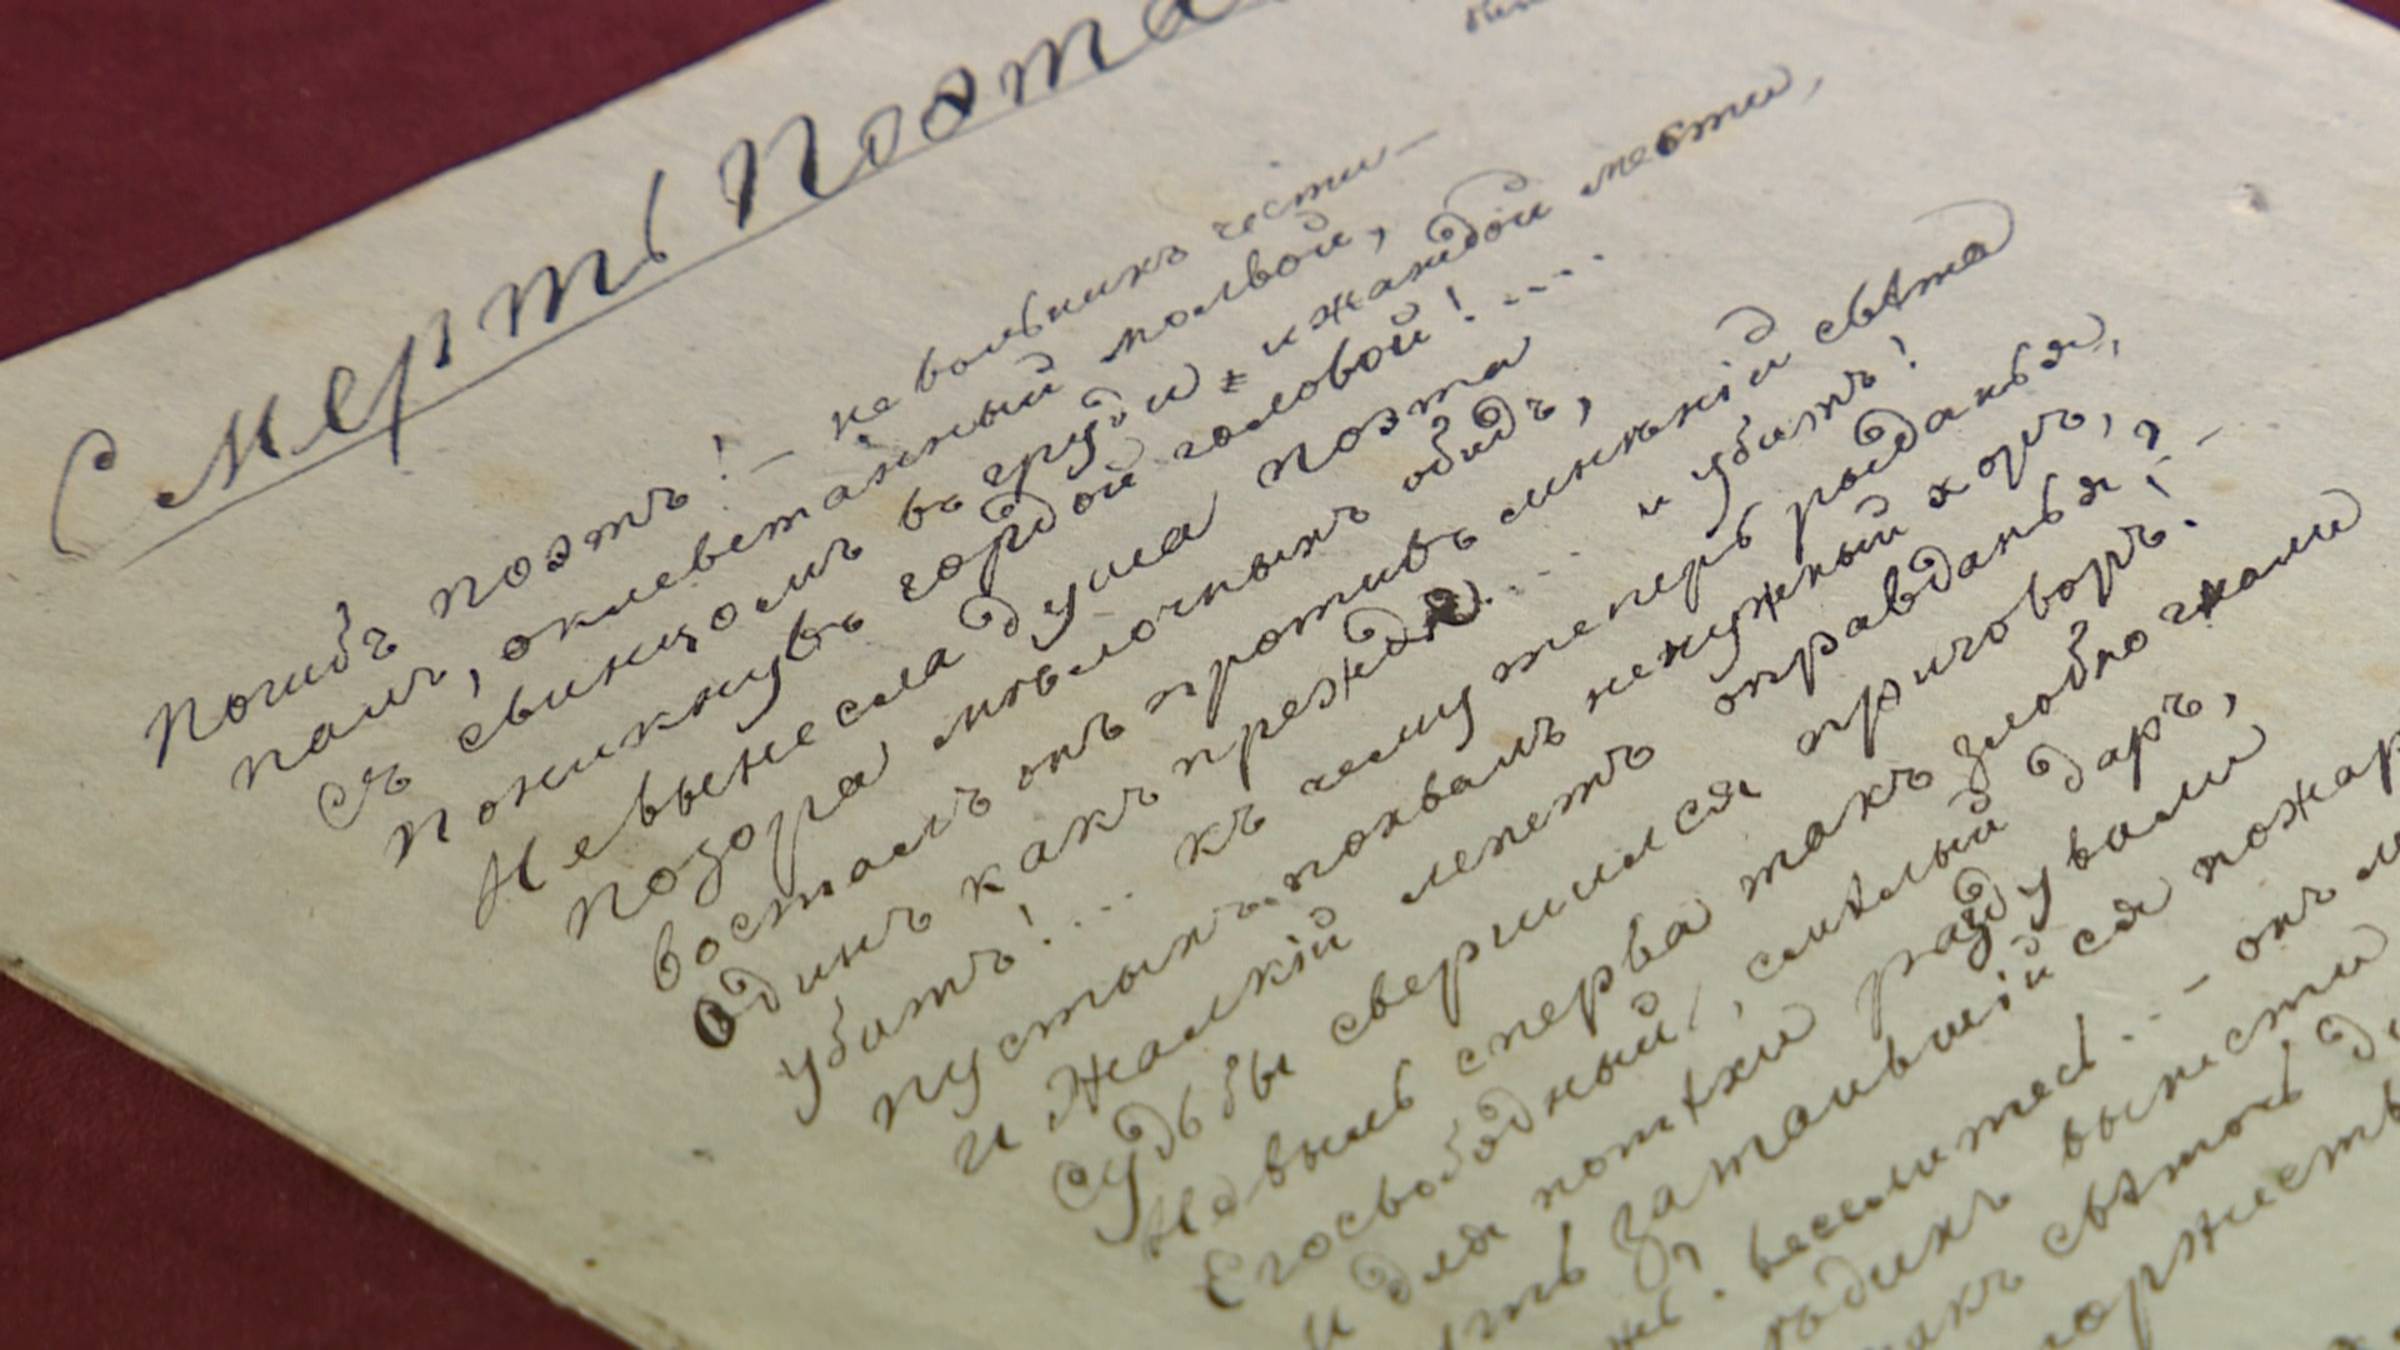 Смерть Поэта
Погибъ поэтъ! – невольникъ чести –
палъ, оклеветанный молвой,
съ свинцомъ въ груди и жаждой мести,
Поникнувъ гордой головой!....
Невынесла душа поэта
Позора мѣлочныхъ обидъ,
Восталъ онъ противъ мнѣній свѣта
Одинъ какъ прежде... и убитъ!
Убитъ!... къ чему теперь рыданья,
пустыхъ похвалъ ненужный хоръ,
и жалкій лепетъ оправданья?
Судьбы свершился приговоръ! –
Невыль сперва такъ злобно гнали
Его свободный, смѣлый даръ,
И для потѣхи раздували
затаившійся пожар
веселитесь... – онъ
вынести
такъ свѣточь